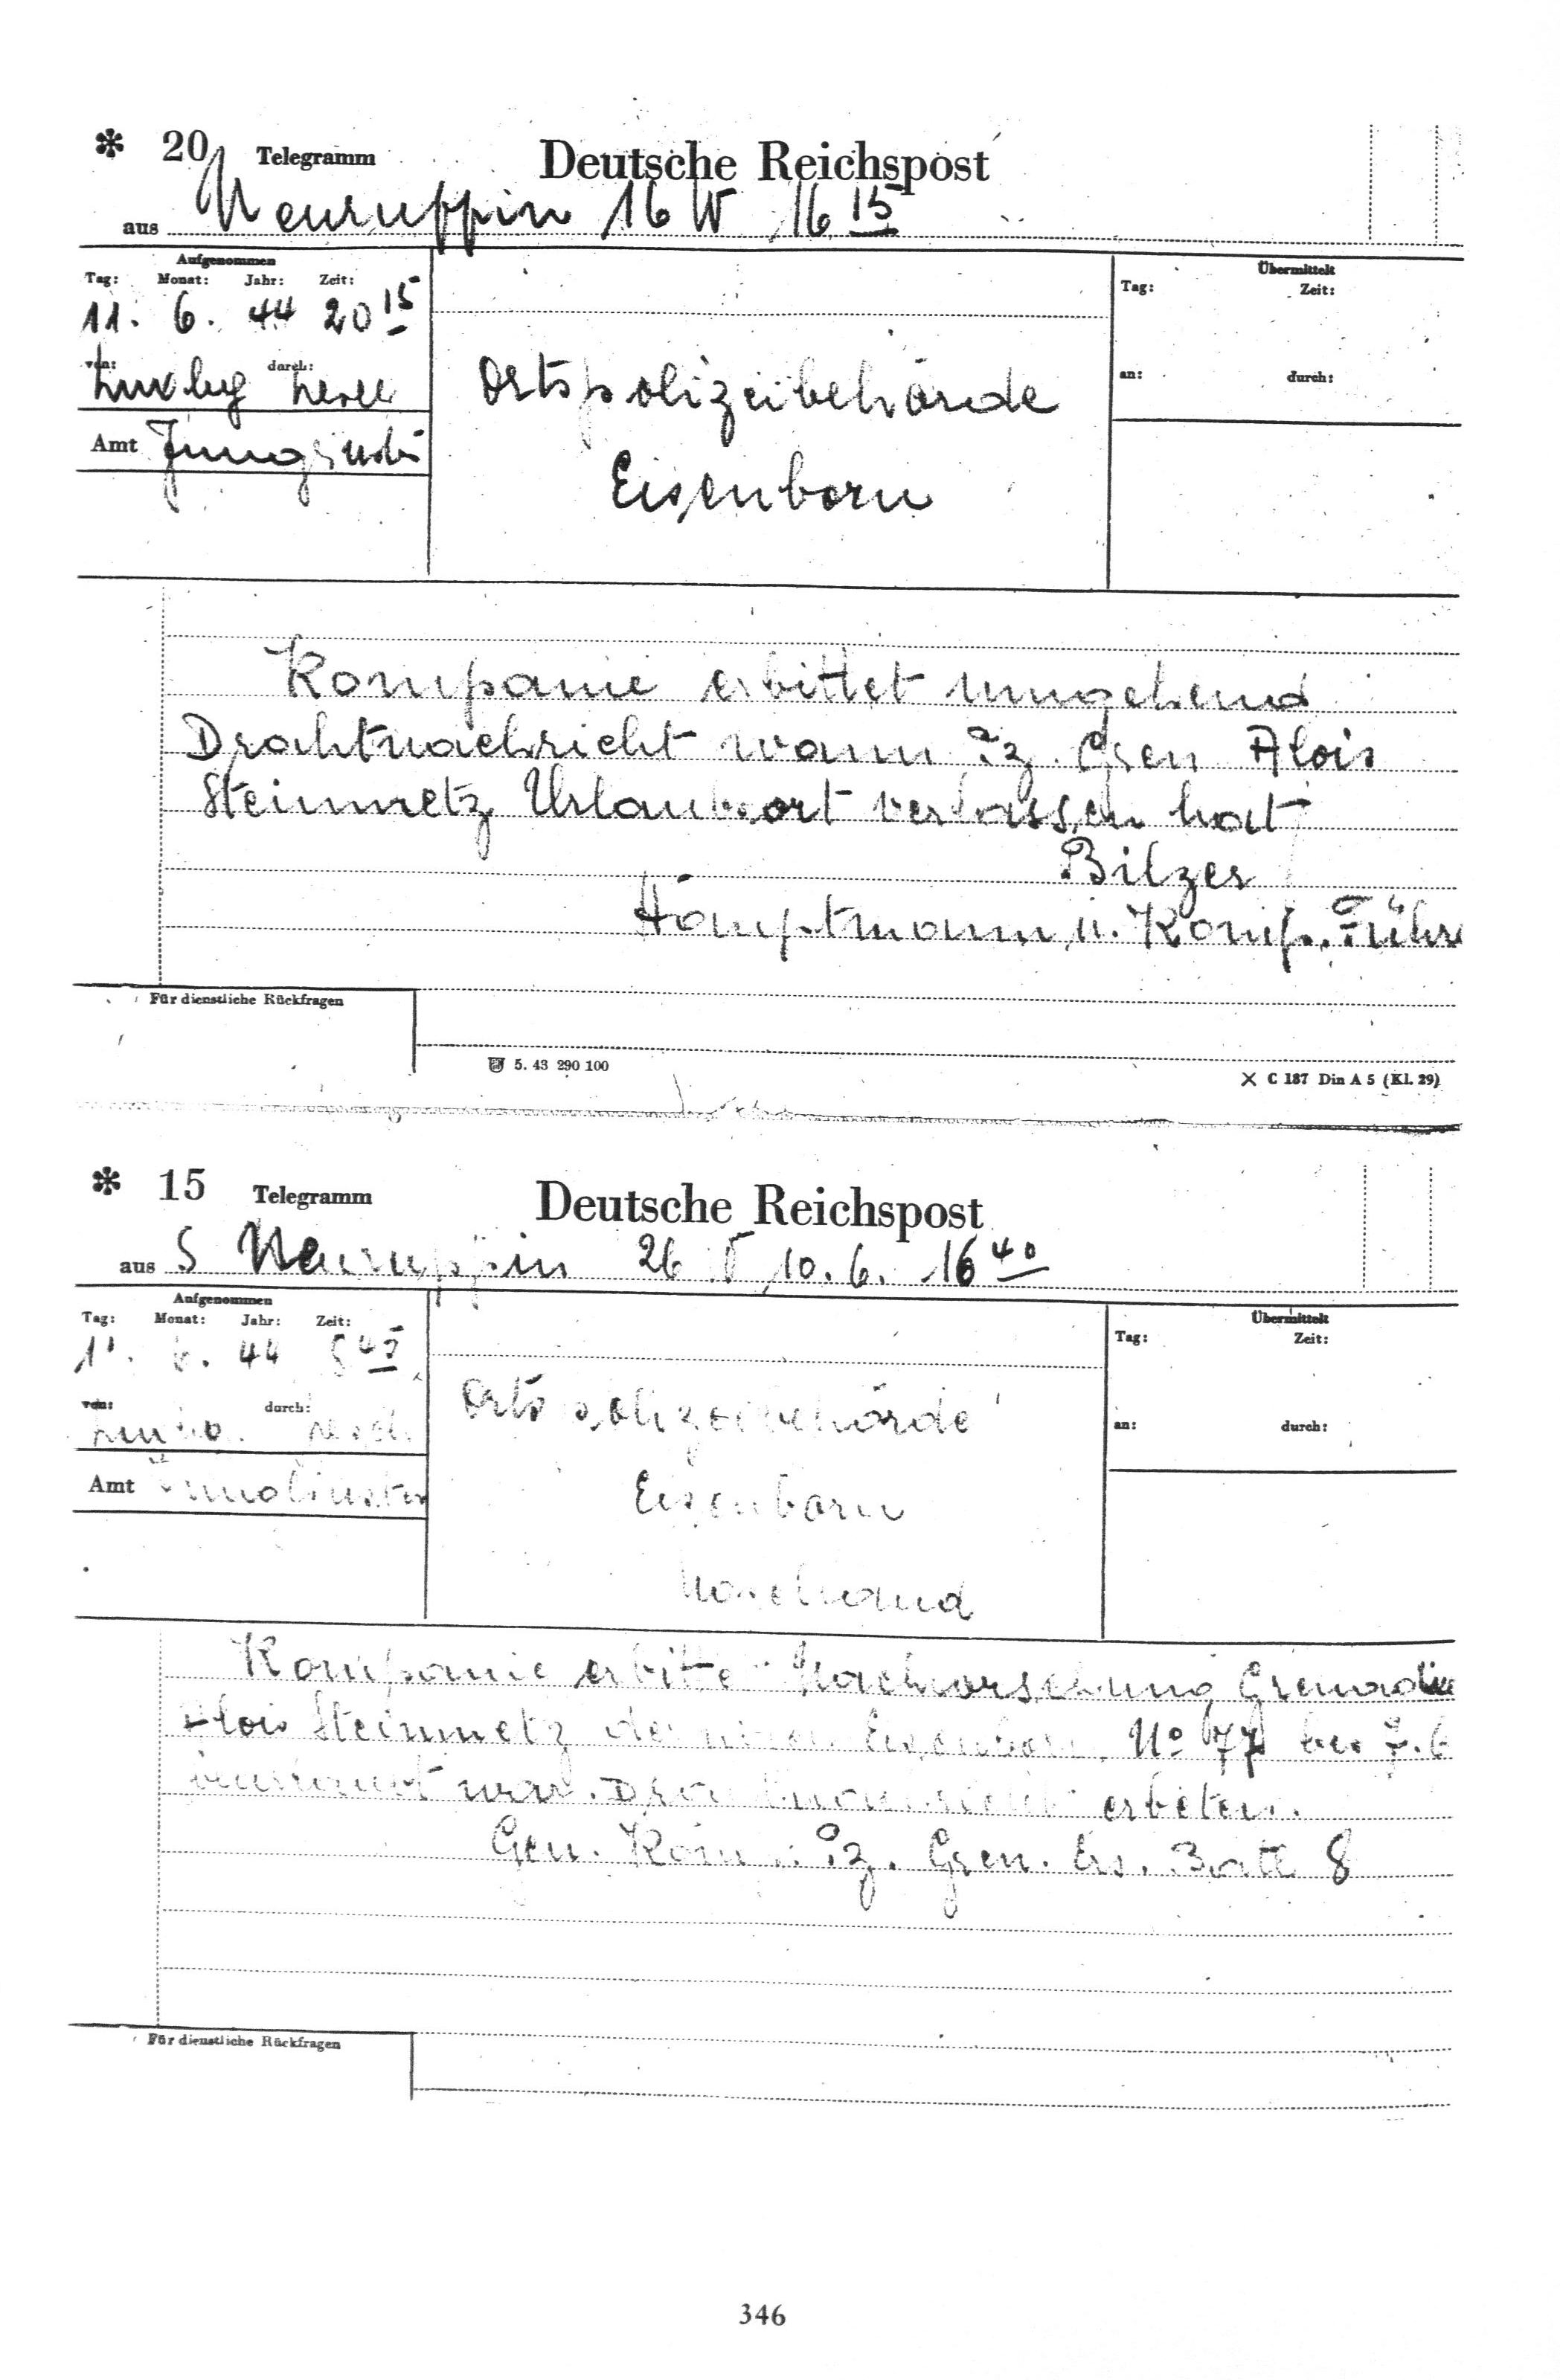 * 20 Telegramm Deutsche Reichspost
aus Neuruppin 16 W 16 15
Aufgenommen
Tag: Monat: Jahr: Zeit:
11. 6. 44 20 15
von: durch:
Amt
Ortspolizeibehörde
Eisenborn
Übermittelt
Tag: Zeit:
an: durch:
Kompanie erbittet umgehend
Drahtnachricht wann Pz. Gren Alois
Steinmetz Urlaubsort verlassen hat
Bilzer
Hauptmann u. Komp. Führ
Für dienstliche Rückfragen
5. 43 290 100
X C 187 Din A 5 (Kl. 29)
* 15 Telegramm Deutsche Reichspost
aus S Neuruppin 26 10. 6. 16 40
Aufgenommen
Tag: Monat: Jahr: Zeit:
44 5 45
von: durch:
Amt
Ortspolizeibehörde
Eisenborn
Moselland
Übermittelt
Tag: Zeit:
an: durch:
Kompanie erbittet Nachforschung Grenadier
Alois Steinmetz der nach Eisenborn No 77 bis 7. 6
beurlaubt war. Drahtnachricht erbeten.
Gen. Komp. Pz. Gren. Ers. Batl 8
Für dienstliche Rückfragen
346